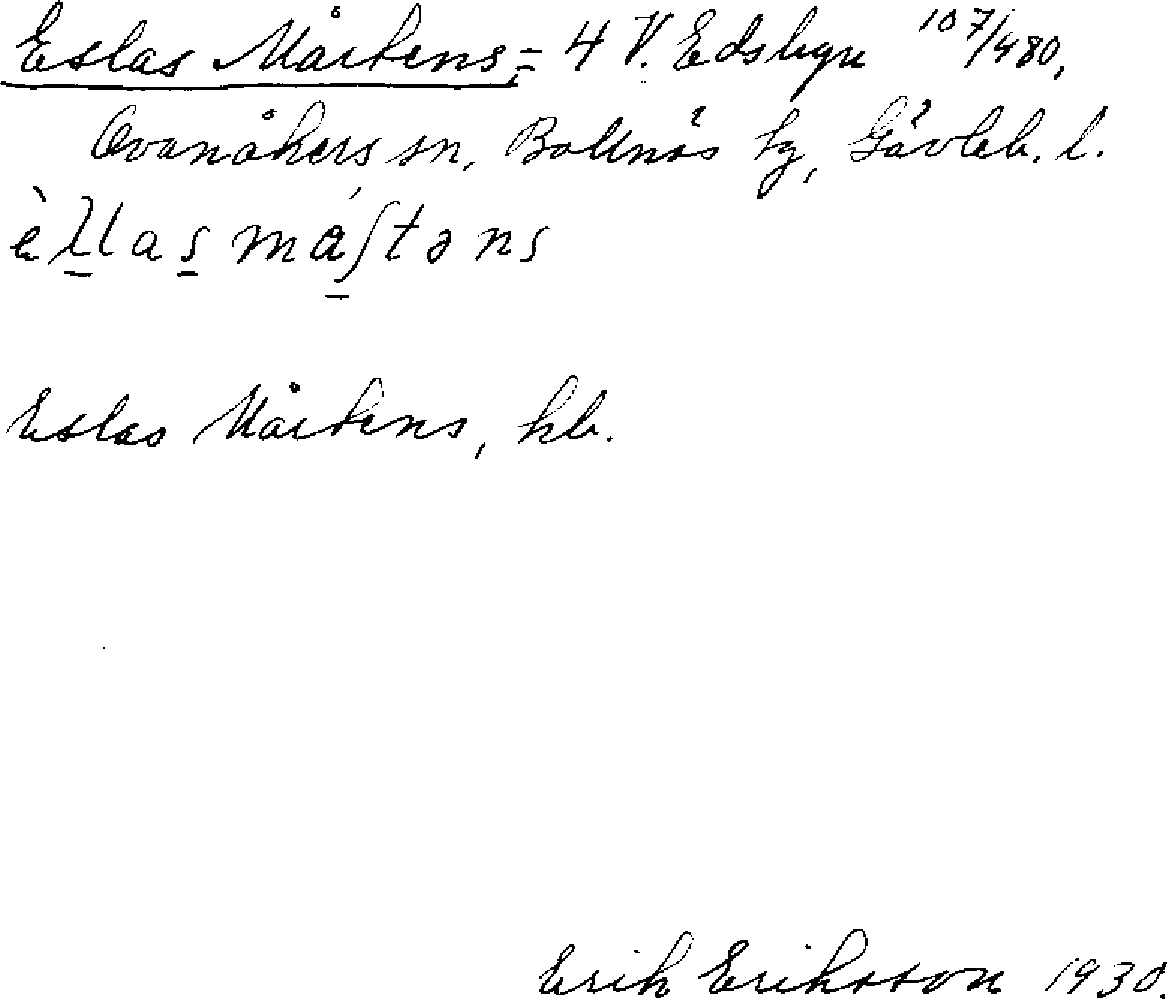 Eslas Mårtens = 4 V. Edsbyn 107/480,
Ovanåkers sn, Bollnäs tg, Gävleb. l.
èl̠las̠ má̠ʃtəns
Eslas Mårtens, kb.
Erik Eriksson 1930.